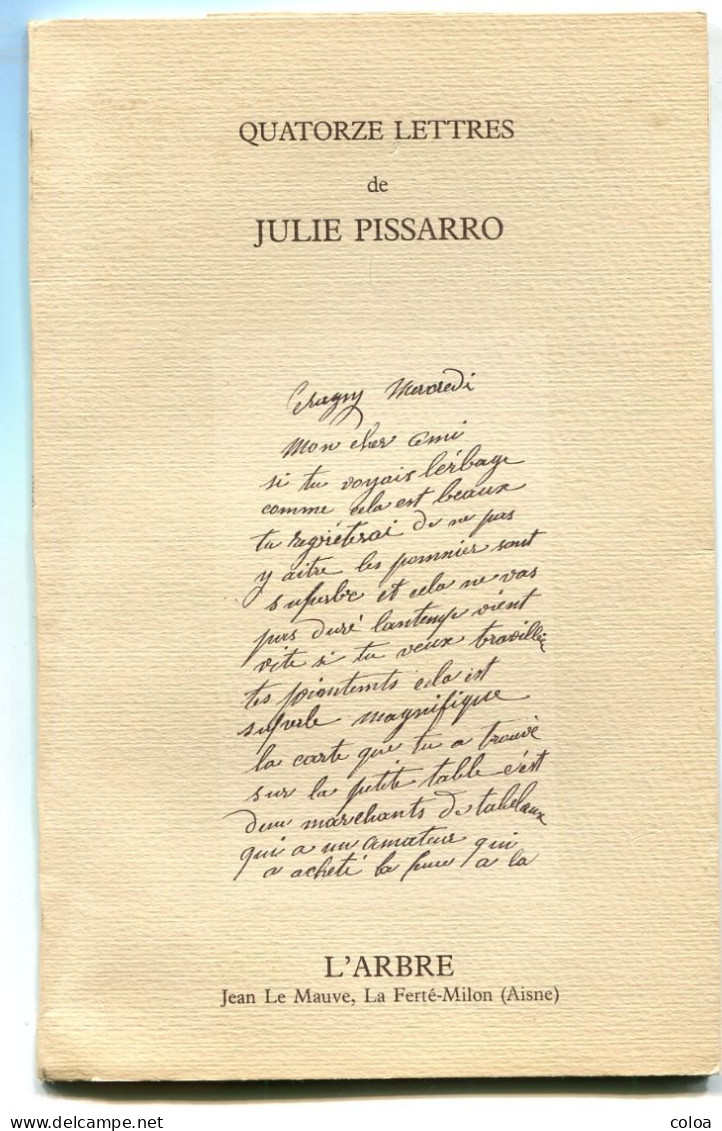 QUATORZE LETTRES
de
JULIE PISSARRO
Eragny Mercredi
Mon cher ami
si tu voyais lérbage
comme cela est beaux
tu regréterai de ne pas
y aitre les pommier sont
superbe et cela ne vas
pas duré lontemp vient
vite si tu veux travillier
tes
cela est
superbe magnifique
la carte que tu a trouvé
sur la petite table c'est
dun marchants de tableaux
qui a un amateur qui
a acheté la
a la
L'ARBRE
Jean Le Mauve, La Ferté-Milon (Aisne)
coloa